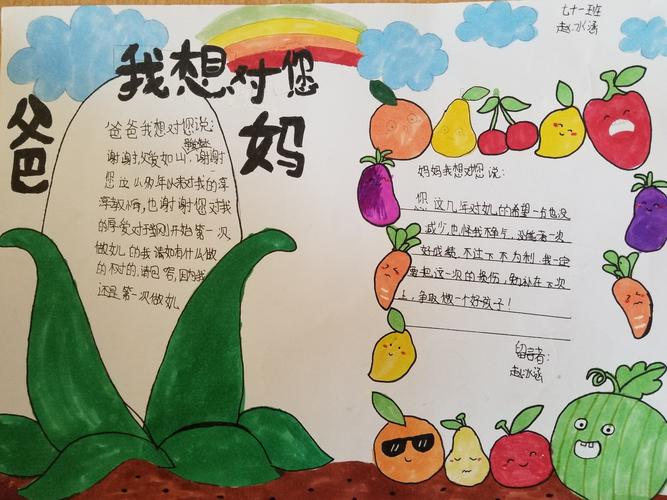 七十一班
赵冰涵
我想对您
爸
妈
爸爸我想对您说:
谢谢,爱如山,谢谢
您这么多年以来对我的谆
谆教悔,也谢谢您对我
的厚爱对于刚开始第一次
做女儿的我请如有什么做
的不对的,请包容,因为我
还是第一次做女儿
妈妈我想对您说:
您这几年对女儿的希望一点也没
减少,也怪我不争气,没能考一次
好成绩,不过下不为利,我一定
要把这一次的损伤,弥补在下次
上,争取做一个好孩子!
留言者:
赵冰涵